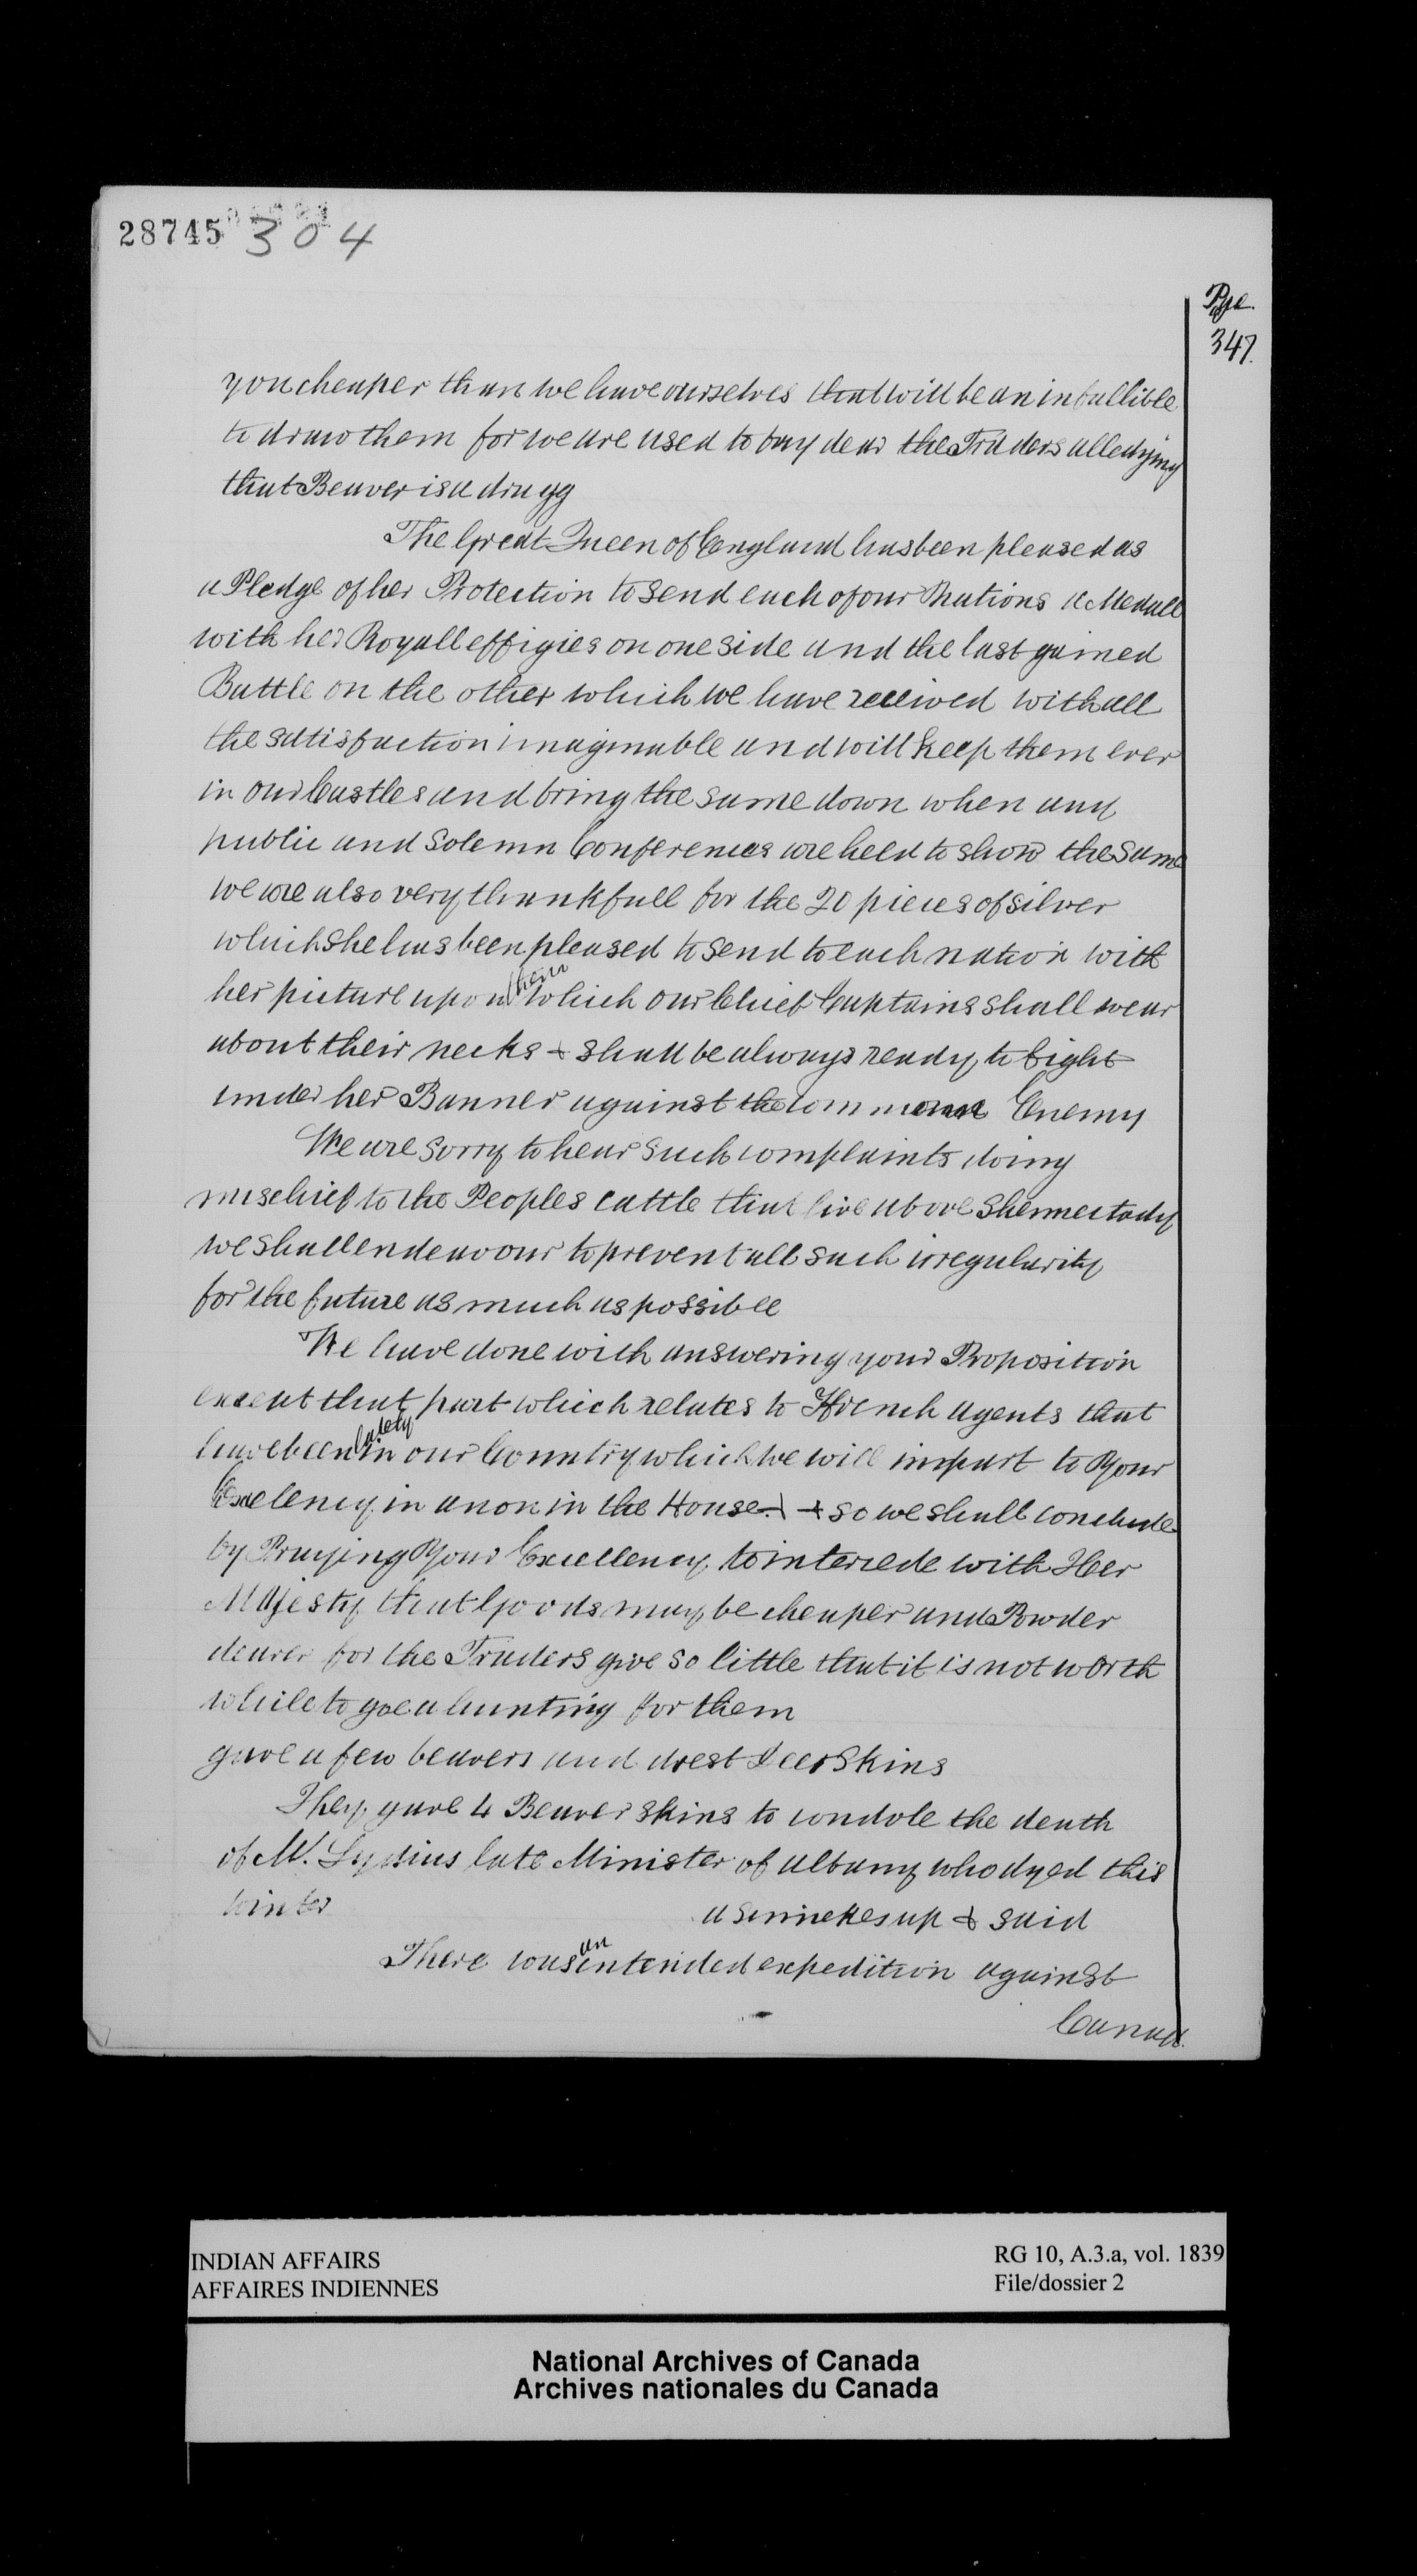 28745 304
Page
347.
you cheaper than we have ourselves that will be an infallible
to draw them for we are used to buy dear the Traders alledging
that Beaver is a drugg
The Great Queen of England has been pleased as
a Pledge of her Protection to send each of our Nations a Medall
with her Royall effigies on one side and the last gained
Battle on the other which we have received with all
the satisfaction imaginable and will keep them ever
in our Castles and bring the same down when any
public and Solemn Conferences are held to show the same
we are also very thankfull for the 20 pieces of silver
which she has been pleased to send to each nation with
her picture upon them which our Chief Captains shall wear
about their necks & shall be always ready to fight
under her Banner against the common Enemy
We are sorry to hear such complaints doing
mischief to the Peoples cattle that live above Shennectady
we shall endeavour to prevent all such irregularity
for the future as much as possible
We have done with answering your Proposition
except that part which relates to French agents that
have been lately in our Country which we will impart to Your
Excelency in anon in the House & so we shall conclude
by Praying Your Excellency to intercede with Her
Majesty that Goods may be cheaper and Powder
dearer for the Traders give so little that it is not worth
while to goe a hunting for them
gave a few beavers and drest Deer Skins
They gave 4 Beaver skins to condole the death
of Mr. Lydius late Minister of Albany who dyed this
winter
a Sinnekes up & said
There was an entended expedition against
Canad
INDIAN AFFAIRS
AFFAIRES INDIENNES
RG 10, A.3.a, vol. 1839
File/dossier 2
National Archives of Canada
Archives nationales du Canada